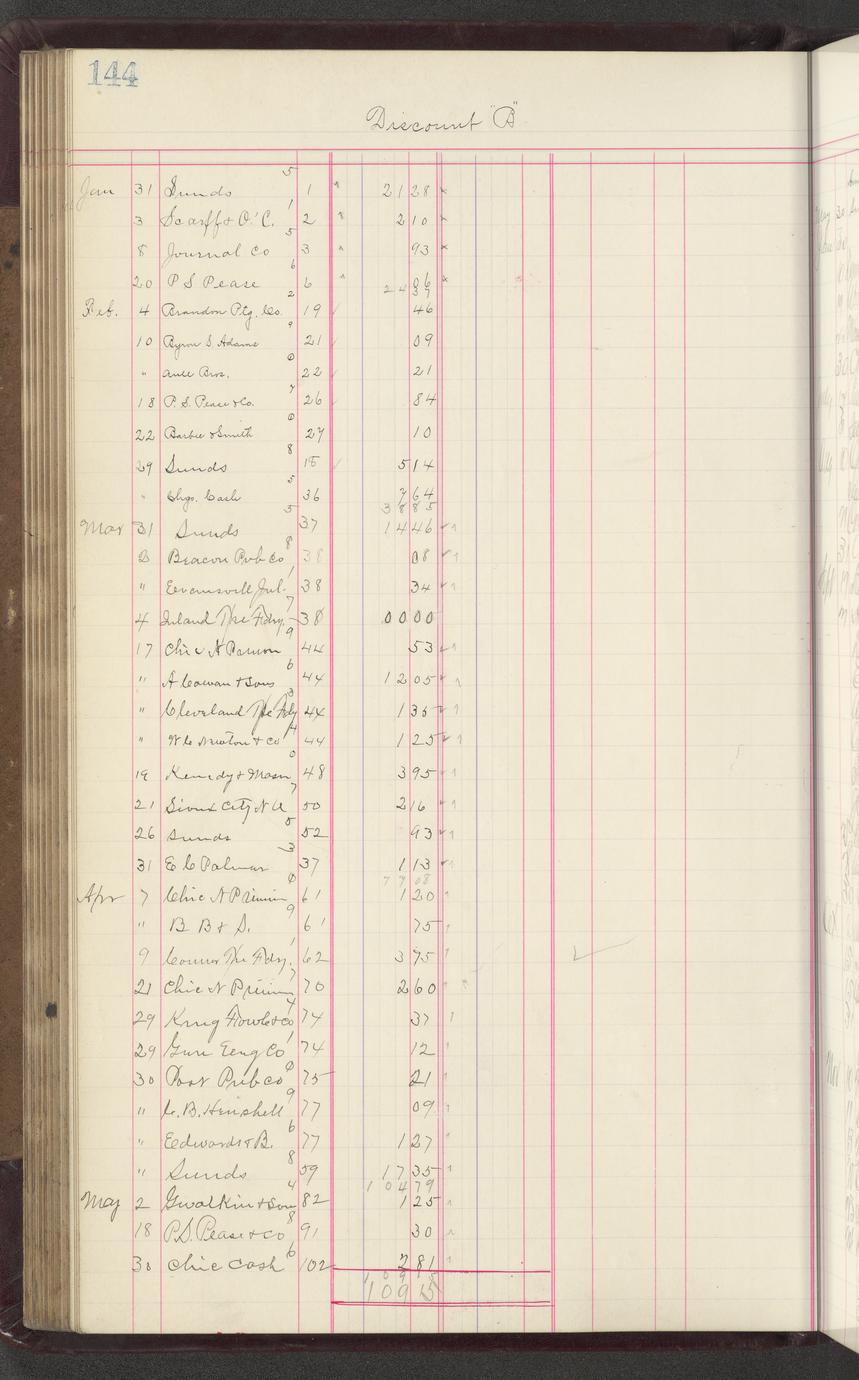 144
Discount "B"
Jan 31 Sunds 5 1 21 28
3 Scarff & O'C. 1 2 2 10
8 Journal Co 5 3 93
20 P S Pease 6 6 06
24 37
Feb. 4 Brandon Ptg. Co. 2 19 46
10 Byron S. Adams 9 21 09
" Ault Bros. 0 22 21
18 P. S. Pease & Co. 7 26 84
22 Barbee & Smith 0 27 10
29 Sunds 8 15 5 14
" Chgo. Cash 5 36 7 64
38 85
Mar 31 Sunds 5 37 14 46
3 Beacon Pub Co 8 38 08
" Evansvill Jul. 1 38 34
4 Inland Type Fdry. 7 38 00 00
17 Chic N 9 44 53
" A Cowan & Sons 6 44 12 05
" Cleveland Type Fdy 3 44 1 35
" W C Newton & Co 4 44 1 25
19 Kenedy & Mason 0 48 3 95
21 Sioux City N U 7 50 2 16
26 Sunds 5 52 93
31 E C Palmer 3 37 1 13
77 08
Apr 7 Chic N 0 61 1 20
" B B & S. 9 61 75
9 Connor Type Fdry. 1 62 3 75
21 Chic N 7 70 2 60
29 Krug Fowle & Co 4 74 37
29 Eeng Co 1 74 12
30 Post Pub Co 0 75 21
" C. B. Henshell 9 77 09
" Eedwards & B. 6 77 1 27
" Sunds 8 59 17 35
104 79
May 2 Gwalkin & Son 4 82 1 25
18 P.S. Pease & Co 8 91 30
30 Chic Cash 6 102 2 81
109 15
109 15